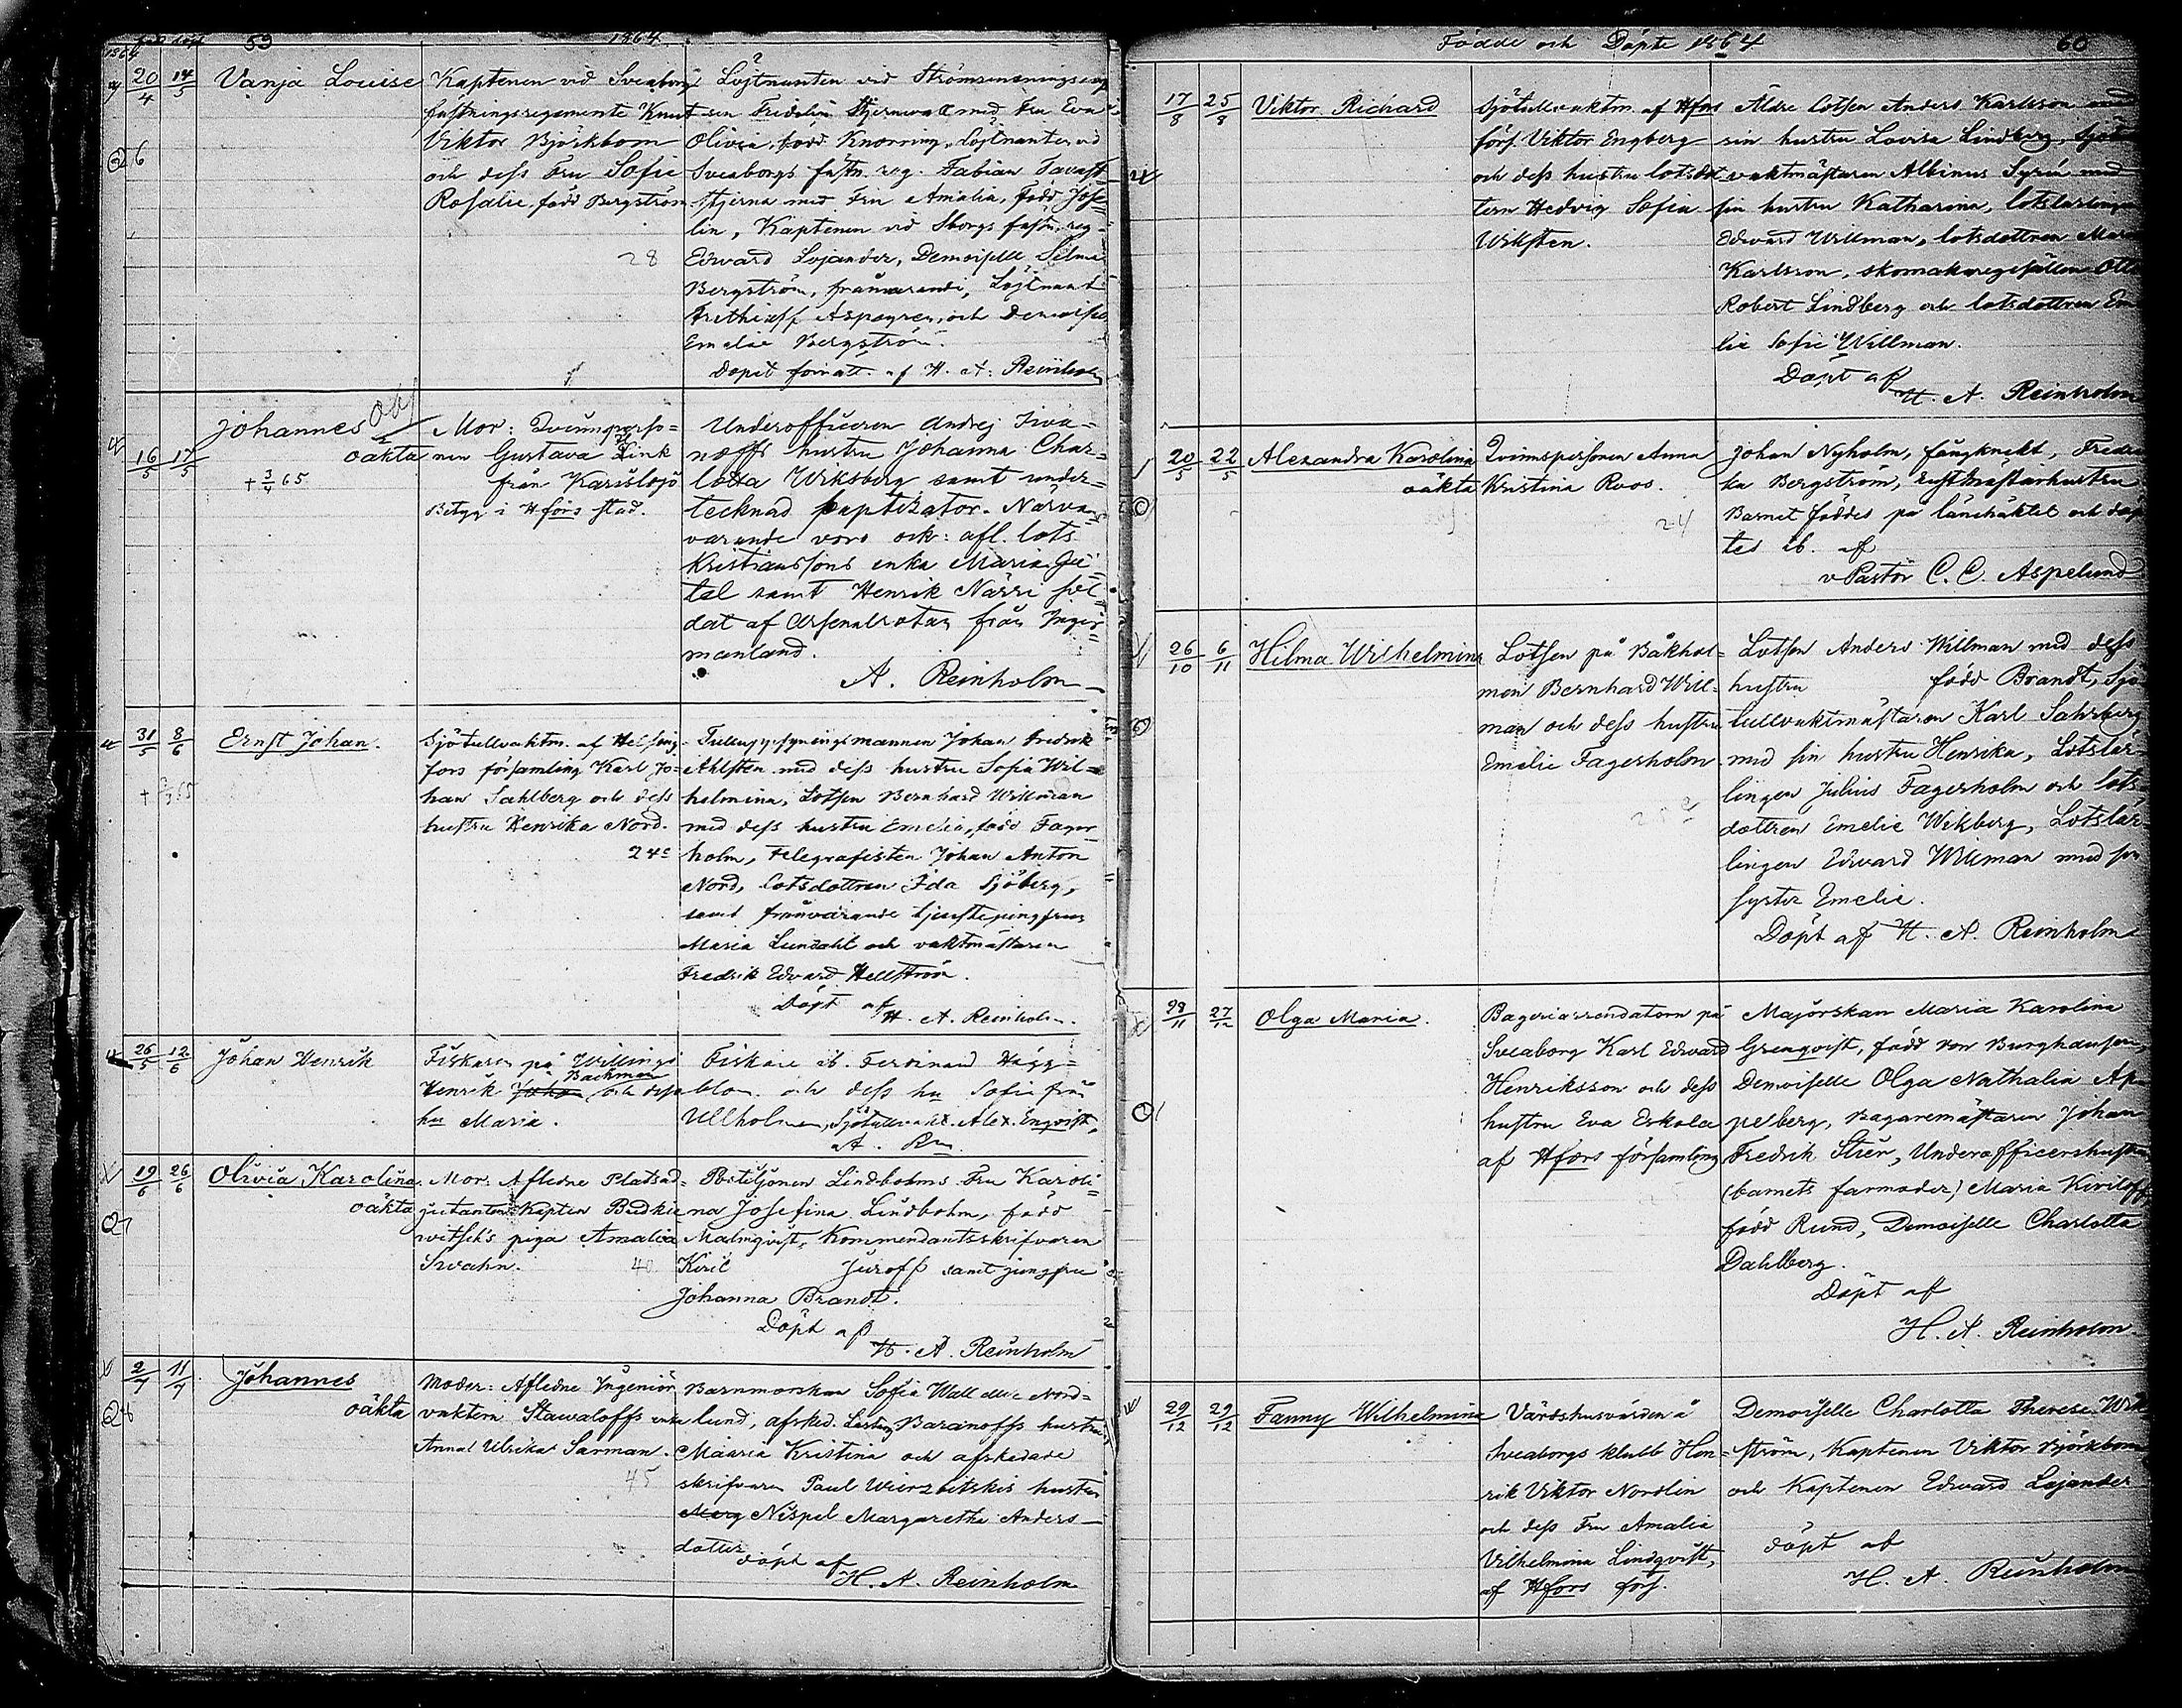 1864 född döpt 59 1864.
20/4 14/5 Vanja Louise
Kaptenen vid Sveaborgs
fästningsregemente Knut
Viktor Björkbom
och dess Fru Sofie
Rosalie, född Bergström
28
Löjtnanten vid
Fredolin Stjernvall med Fru Eva
Olivia, född Knorring, Löjtnanten vid
Sveaborgs fästn. reg. Fabian Tavast-
stjerna med Fru Amalia, född Jose-
lin, Kaptenen vid Sborgs fästn. reg.
Edvard Lojander, Demoiselle Selma
Bergström, frånvarande, Löjtnant
Frithioff Aspegren, och Demoiselle
Emelie Bergström.
Döpt förrätt. af H. A. Reinholm
16/5 17/5 Johannes
oäkta
+ 3/4 65
Mor: Qvinnsperso-
nen Gustava Link
från Karislojo
Betyg i Hfors stad.
Underofficeren Andrej Iva-
noffs hustru Johanna Char-
lotta Wiksberg samt under-
tecknad baptizator. Närva-
varande voro ock: afl. lots
Kristianssons enka Maria
tal samt Henrik Närri sol-
dat af Arsenalrotan från Inger-
manland.
A. Reinholm
31/5 8/6 Ernst Johan.
Sjötullvaktm. af Helsing-
fors församling Karl Jo-
han Sahlberg och dess
hustru Henrika Nord.
24
Tulluppsyningsmannen Johan Fredrik
Ahlsten med dess hustru Sofia Wil-
helmina, Lotsen Bernhard Willman
med dess hustru Emelia, född Fager-
holm, Telegrafisten Johan Anton
Nord, lotsdottren Ida Sjöberg,
samt frånvarande tjenstepingfrun
Maria Lundahl och vaktmästaren
Fredrik Edvard Hellström.
Döpt af
H. A. Reinholm.
26/5 12/6 Johan Henrik
Fiskaren på Willinge
Backman
Henrik och dess
hu Maria.
Fiskare ib. Ferdinand Hägg-
blom och dess hu Sofia från
Ullholmen, Sjötullvakt. Alex. Enqvist,
A. Rm.
19/6 26/6 Olivia Karolina
oäkta
Mor. Afledne Platsad-
jutanten Kapten Budkie-
witsch's piga Amalia
Svahn.
40
Postiljonen Lindholms Fru Karoli-
na Josefina Lindholm, född
Malmqvist, Kommendantsskrifvaren
Kiril Juroff samt jungfru
Johanna Brandt.
Döpt af
H. A. Reinholm
2/7 11/7 Johannes
oäkta
Moder: Afledne Ingeniör
vaktern Stawaloffs enka
Anna Ulrika Sarman.
45
Barnmorskan Sofia Wall Nord-
lund, afsked. Baranoffs hustru
Maria Kristina och afskedade
skrifvaren Paul Wierzbitskis hustru
Nispel Margaretha Anders-
dotter
döpt af
H. A. Reinholm
Födde och Döpte 1864 60
17/8 25/8 Viktor Richard
Sjötullvaktm. af Hfors
förs. Viktor Engberg
och dess hustru lotsdot-
tern Hedvig Sofia
Wiksten.
Äldre lotsen Anders Karlsson med
sin hustru Lovisa Lindberg, Sjötull-
vaktmästaren Albinus Syrén med
sin hustru Katharina, lotslärlingen
Edvard Willman, lotsdottren Maria
Karlsson, skomakaregesällen Otto
Robert Lindberg och lotsdottren Eme-
lie Sofie Willman.
Döpt af
H. A. Reinholm
20/5 22/5 Alexandra Karolina
oäkta
Qvinnspersonen Anna
Kristina Roos.
24
Johan Nyholm, fångknekt, Fredri-
ka Bergström,
Barnet föddes på länehäktet och döp-
tes ib. af
v Pastor C. C. Aspelund
26/10 6/11 Hilma Wilhelmina
Lotsen på Båkhol-
men Bernhard Will-
man och dess hustru
Emelie Fagerholm
Lotsen Anders Willman med dess
hustru född Brandt, Sjö-
tullvaktmästaren Karl Sahlberg
med sin hustru Henrika, Lotslär-
lingen Julius Fagerholm och lots-
dottren Emelie Wikberg, Lotslär-
lingen Edvard Willman med sin
syster Emelie.
Döpt af H. A. Reinholm
28/11 27/12 Olga Maria.
Bageriarrendatorn på
Sveaborg Karl Edvard
Henriksson och dess
hustru Eva Eskola
af Hfors församling
Majorskan Maria Karolina
Grenqvist, född von Burghausen,
Demoiselle Olga Nathalia Ap-
pelberg, Bagaremästaren Johan
Fredrik Strén, Underofficershustrun
(barnets farmoder) Maria Kiriloff,
född Rund, Demoiselle Charlotta
Dahlberg.
Döpt af
H. A. Reinholm.
29/12 29/12 Fanny Wilhelmina
Värdshusvärden å
Sveaborgs klubb Hen-
rik Viktor Nordlin
och dess Fru Amalia
Vilhelmina Lindqvist,
af Hfors förs.
Demoiselle Charlotta Therese Wik-
ström, Kaptenen Viktor Björkbom
och Kaptenen Edvard Lojander
döpt af
H. A. Reinholm